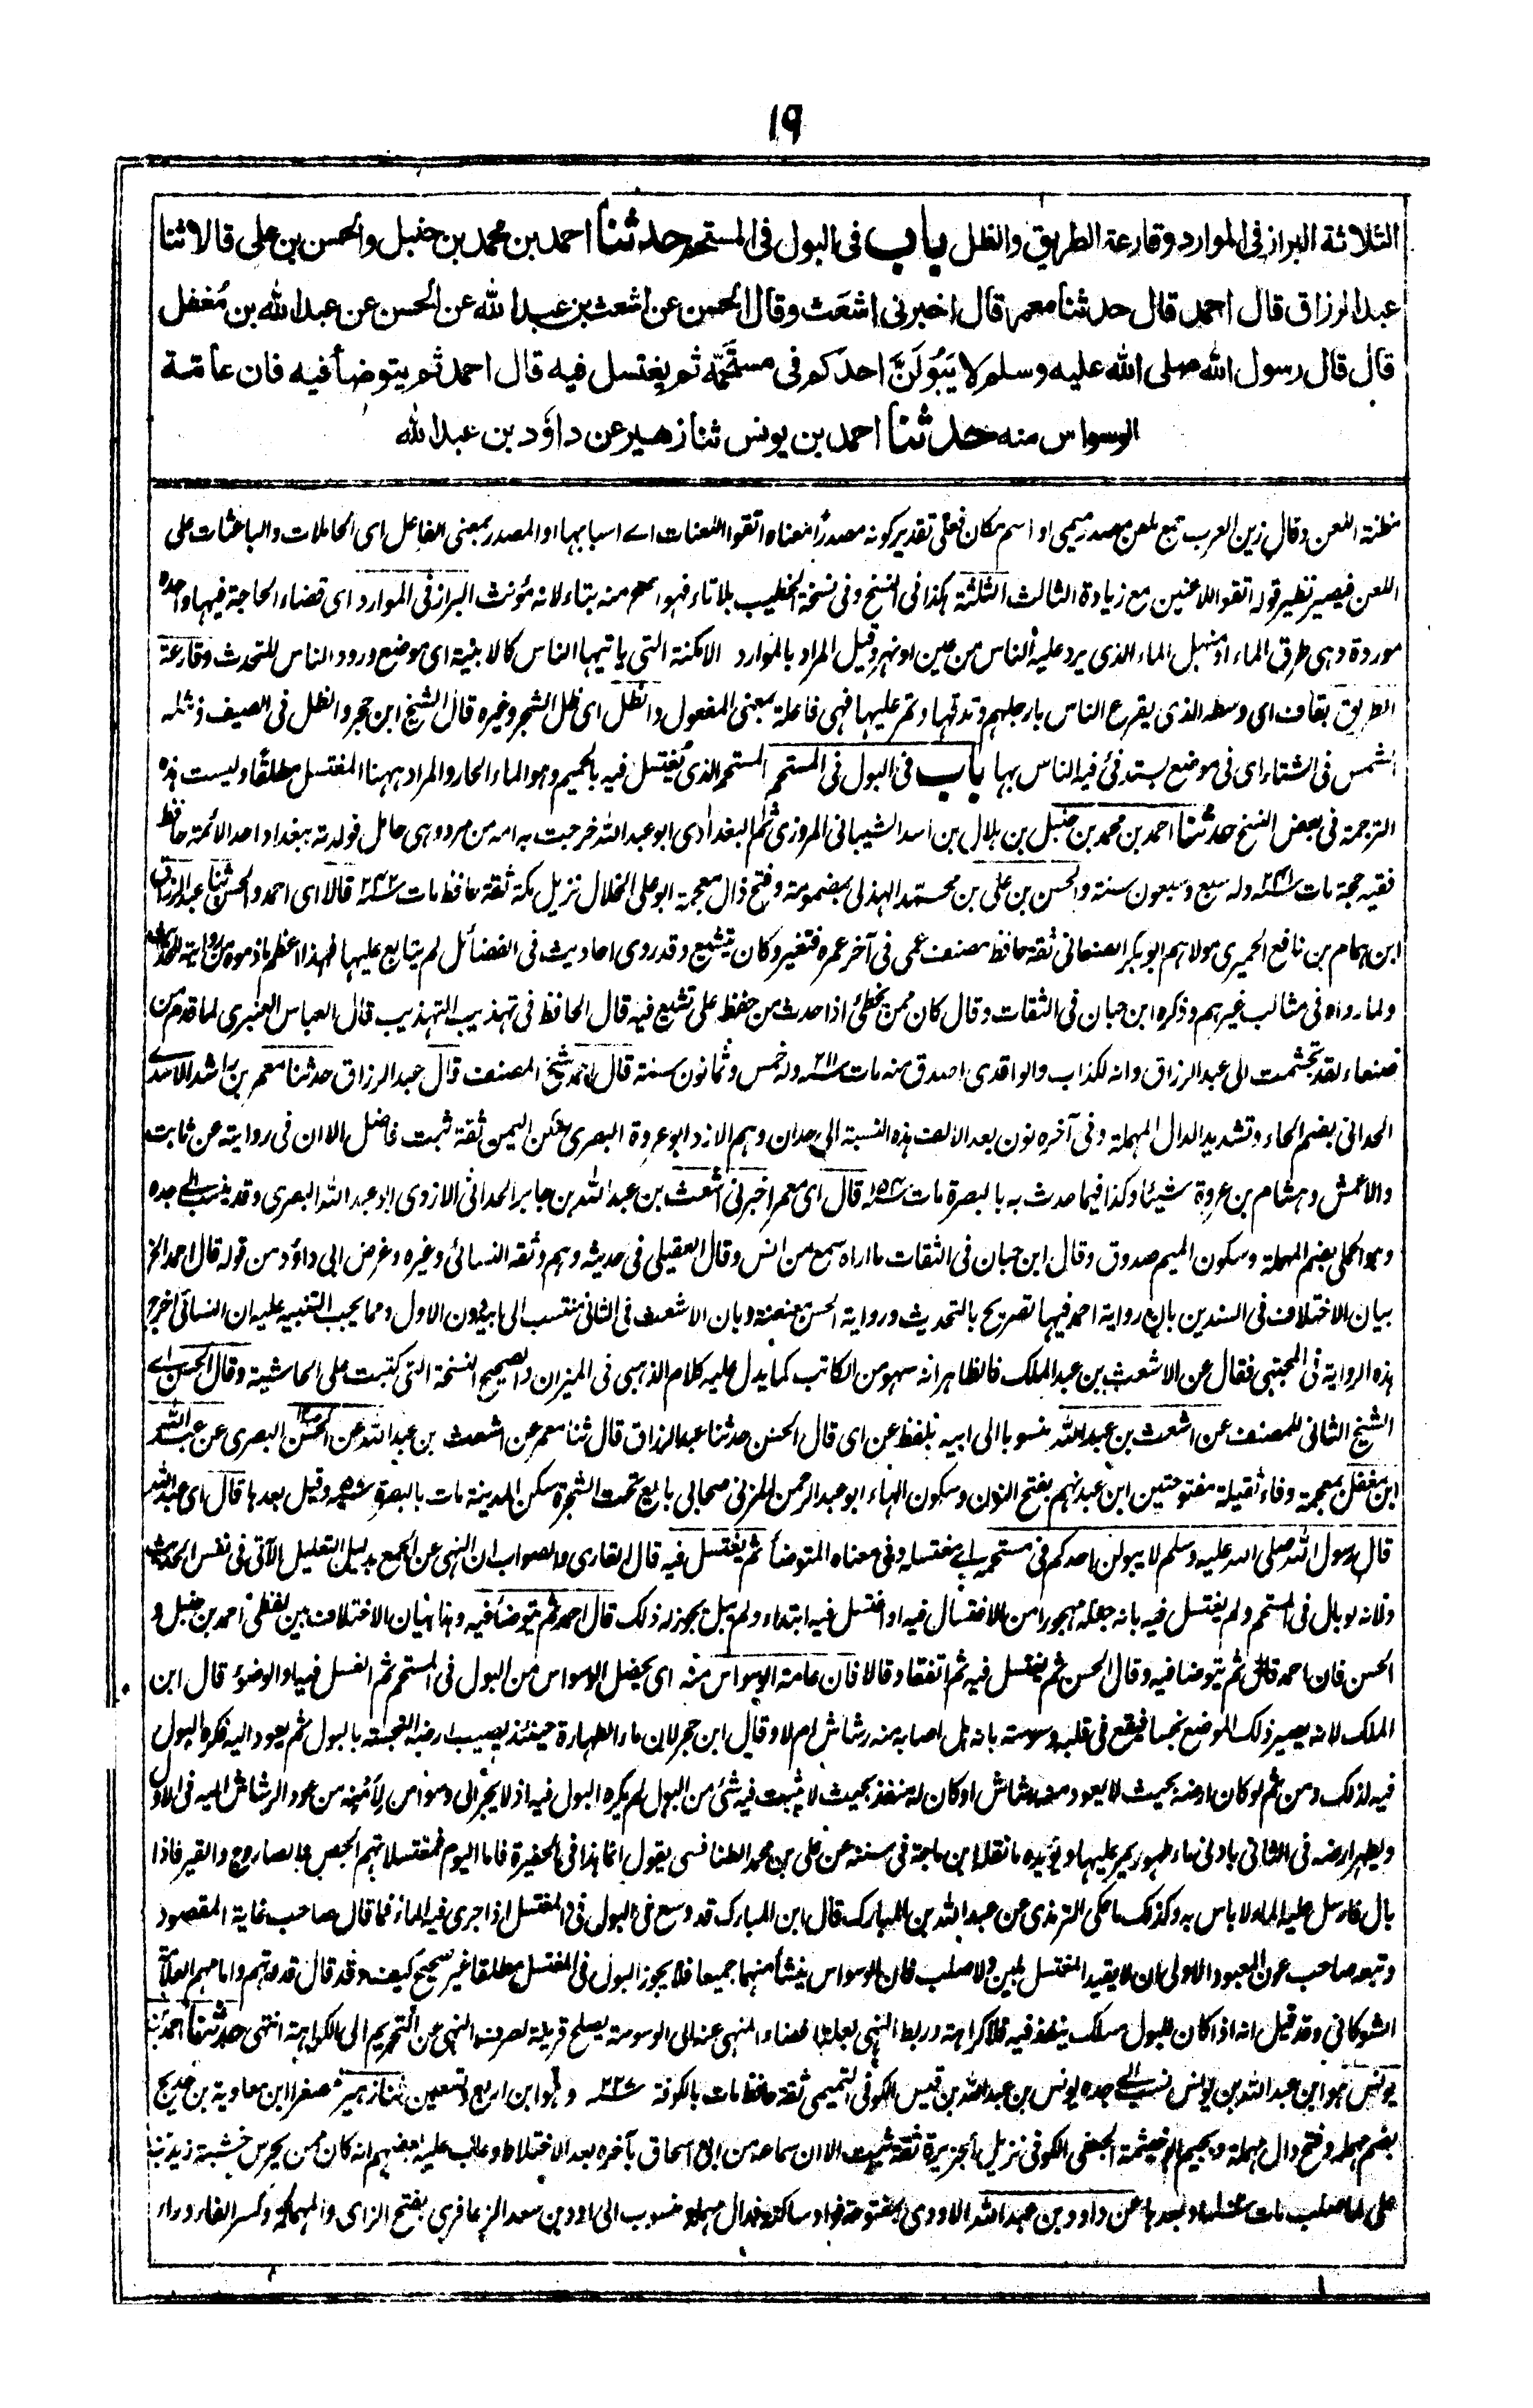 ١٩
الثلاثة البراز فى الموارد وقارعة الطريق والظل باب فى البول فى المستحم حدثنا احمد بن محمد بن حنبل والحسن بن على قالا ثنا
عبد الرزاق قال احمد قال حدثنا معمر قال اخبرنى اشعَث وقال الحسن عن اشعث بن عبد الله عن الحسن عن عبد الله بن مُغفل
قال قال رسول الله صلى الله عليه وسلم لا يَبُولَنَّ احدكم فى مستحَمّه ثم يغتسل فيه قال احمد ثم يتوضأ فيه فان عامّة
الوسواس منه حدثنا احمد بن يونس ثنا زهير عن داؤد بن عبد الله
مظنة اللعن وقال زين العرب جمع ملعن مصدر ميمى او اسم مكان فعلى تقدير كونه مصدرًا معناه اتقوا اللعنات اے اسبابها او المصدر بمعنى الفاعل اى الحاملات والباعثات على
اللعن فيصير نظير قوله اتقوا اللاعنين مع زيادة الثالث الثلثة هكذا فى النسخ وفى نسخة الخطيب بلا تاء فهو اصح منه بتاء لانه مؤنث البراز فى الموارد اى قضاء الحاجة فيها واحده
موردة وهى طرق الماء او منهل الماء الذى يرد عليه الناس من عين او نهر وقيل المراد بالموارد الامكنة التى ياتيها الناس كالابنية اى موضع ورود الناس للتحدث وقارعة
الطريق بقاف اى وسطه الذى يقرع الناس بارجلهم وتدقها وتمر عليها فهى فاعلة بمعنى المفعول والظل اى ظل الشجر وغيره قال الشيخ ابن حجر والظل فى الصيف ومثله
الشمس فى الشتاء اى فى موضع يستدفئ فيه الناس بها باب فى البول فى المستحم المستحم الذى يُغتسل فيه بالحميم وهو الماء الحار والمراد ههنا المغتسل مطلقًا وليست هذه
الترجمة فى بعض النسخ حدثنا احمد بن محمد بن حنبل بن هلال بن اسد الشيبانى المروزى ثم البغدادى ابو عبد الله خرجت به امه من مرو وهى حامل فولدته ببغداد احد الائمة حافظ
فقيه حجة مات سنة ٢٤١ وله سبع وسبعون سنة والحسن بن على بن محمد الهذلى بمضمومة وفتح ذال معجمة ابو على الخلال نزيل مكة ثقة حافظ مات سنة ٢٤٢ قالا اى احمد والحسن ثنا عبد الرزاق
ابن همام بن نافع الحميرى مولاهم ابو بكر الصنعانى ثقة حافظ مصنف عمى فى آخر عمره فتغير وكان يتشيع وقد روى احاديث فى الفضائل لم يتابع عليها فهذا اعظم ما ذموه من روايته
ولما رواه فى مثالب غيرهم وذكره ابن حبان فى الثقات وقال كان ممن يخطئ اذا حدث من حفظه على تشيع فيه قال الحافظ فى تهذيب التهذيب قال العباس العنبرى لما قدم من
صنعاء لقد تجشمت الى عبد الرزاق وانه لكذاب والواقدى اصدق منه مات سنة ٢١١ وله خمس وثمانون سنة قال احمد شيخ المصنف قال عبد الرزاق حدثنا معمر بن راشد الاسدے
الحدانى بضم الحاء وتشديد الدال المهملة وفى آخره نون بعد الالف هذه النسبة الى حدان وهم الازد ابو عروة البصرى سكن اليمن ثقة ثبت فاضل الا ان فى روايته عن ثابت
والاعمش وهشام بن عروة شيئا وكذا فيما حدث به بالبصرة مات سنة ١٥٤ قال اى معمر اخبرنى اشعث بن عبد الله بن جابر الحدانى الازدى ابو عبد الله البصرى وقد ينسب الى جده
وهو الحملى بضم المهملة وسكون الميم صدوق وقال ابن حبان فى الثقات ما اراه سمع من انس وقال العقيلى فى حديثه وهم وثقه النسائى وغيره وغرض ابى داؤد من قوله قال احمد الخ
بيان الاختلاف فى السندين بان رواية احمد فيها تصريح بالتحديث ورواية الحسن معنعنة وبان الاشعث فى الثانى منتسب الى ابيه دون الاول ومما يجب التنبيه عليه ان النسائى اخرج
هذه الرواية فى المجتبى فقال عن الاشعث بن عبد الملك فالظاهر انه سهو من الكاتب كما يدل عليه كلام الذهبى فى الميزان والصحيح النسخة التى كتبت على الحاشية وقال الحسن اے
الشيخ الثانى للمصنف عن اشعث بن عبد الله منسوبا الى ابيه بلفظ عن اى قال الحسن حدثنا عبد الرزاق قال ثنا معمر عن اشعث بن عبد الله عن الحسن البصرى عن عبد الله
ابن مغفل بمعجمة وفاء ثقيلة مفتوحتين ابن عبد نهم بفتح النون وسكون الهاء ابو عبد الرحمن المزنى صحابى بايع تحت الشجرة سكن المدينة مات بالبصرة وقيل بعدها قال اى عبد الله
قال رسول الله صلى الله عليه وسلم لا يبولن احدكم فى مستحمه اے مغتسله وفى معناه المتوضأ ثم يغتسل فيه قال القارى والصواب ان النهى عن الجمع بدليل التعليل الآتى فى نفس الحديث
ولانه لو بال فى المستحم ولم يغتسل فيه بانه جعله مهجورا من الاغتسال فيه او اغتسل فيه ابتداء ولم يبل يجوز له ذلك قال احمد ثم يتوضأ فيه وهذا بيان الاختلاف بين لفظى احمد بن حنبل و
الحسن فان احمد قال ثم يتوضا فيه وقال الحسن ثم يغتسل فيه ثم اتفقا وقالا فان عامة الوسواس منه اى يحصل الوسواس من البول فى المستحم ثم الغسل فيه او الوضوء قال ابن
الملك لانه يصير ذلك الموضع نجسا فيقع فى قلبه وسوسته بانه هل اصابه منه رشاش ام لا وقال ابن حجر لان ماء الطهارة حينئذ يصيب ارضه النجسة بالبول ثم يعود اليه فكره البول
فيه لذلك ومن ثم لو كان ارضه بحيث لا يعود منه رشاش او كان له منفذ بحيث لا يثبت فيه شئ من البول لم يكره البول فيه اذ لا يجر الى وسواس لأمنه من عود الرشاش اليه فى الاول
ولطهر ارضه فى الثانى بادنى ماء طهور يمر عليها ويؤيده ما نقل ابن ماجة فى سننه عن على بن محمد الطنافسى يقول انما هذا فى الحفيرة فاما اليوم فمغتسلاتهم الجص والصاروج والقير فاذا
بال فارسل عليه الماء لا باس به وكذلك ما حكى الترمذى عن عبد الله بن المبارك قال ابن المبارك قد وسع فى البول فى المغتسل اذا جرى فيه الماء فما قال صاحب غاية المقصود
وتبعه صاحب عون المعبود الاولى ان لا يقيد المغتسل بلين ولا صلب فان الوسواس ينشأ منهما جميعا فلا يجوز البول فى المغتسل مطلقا غير صحيح كيف وقد قال قدوتهم وامامهم العلامة
الشوكانى وقد قيل انه اذا كان للبول مسلك ينفذ فيه فلا كراهة وربط النهى بعلة افضاء المنهى عنه الى الوسوسة يصلح قرينة لصرف النهى عن التحريم الى الكراهة انتهى حدثنا احمد بن
يونس هو ابن عبد الله بن يونس نسب الى جده يونس بن عبد الله بن قيس الكوفى التميمى ثقة حافظ مات بالكوفة سنة ٢٢٧ وهو ابن اربع وتسعين ثنا زهير مصغرا ابن معاوية بن حديج
بضم مهملة وفتح دال مهملة وبجيم ابو خيثمة الجعفى الكوفى نزيل الجزيرة ثقة ثبت الا ان سماعه من ابى اسحاق بآخره بعد الاختلاط وعاب عليه بعضهم انه كان ممن يحرس خشبة زيد
على لما صلب مات وبعدها عن داود بن عبد الله الاودى بمفتوحة فواو ساكنة فدال مهملة منسوب الى اود بن سعد الزعافرى بفتح الزاى والمهملة وكسر الفاء وراء